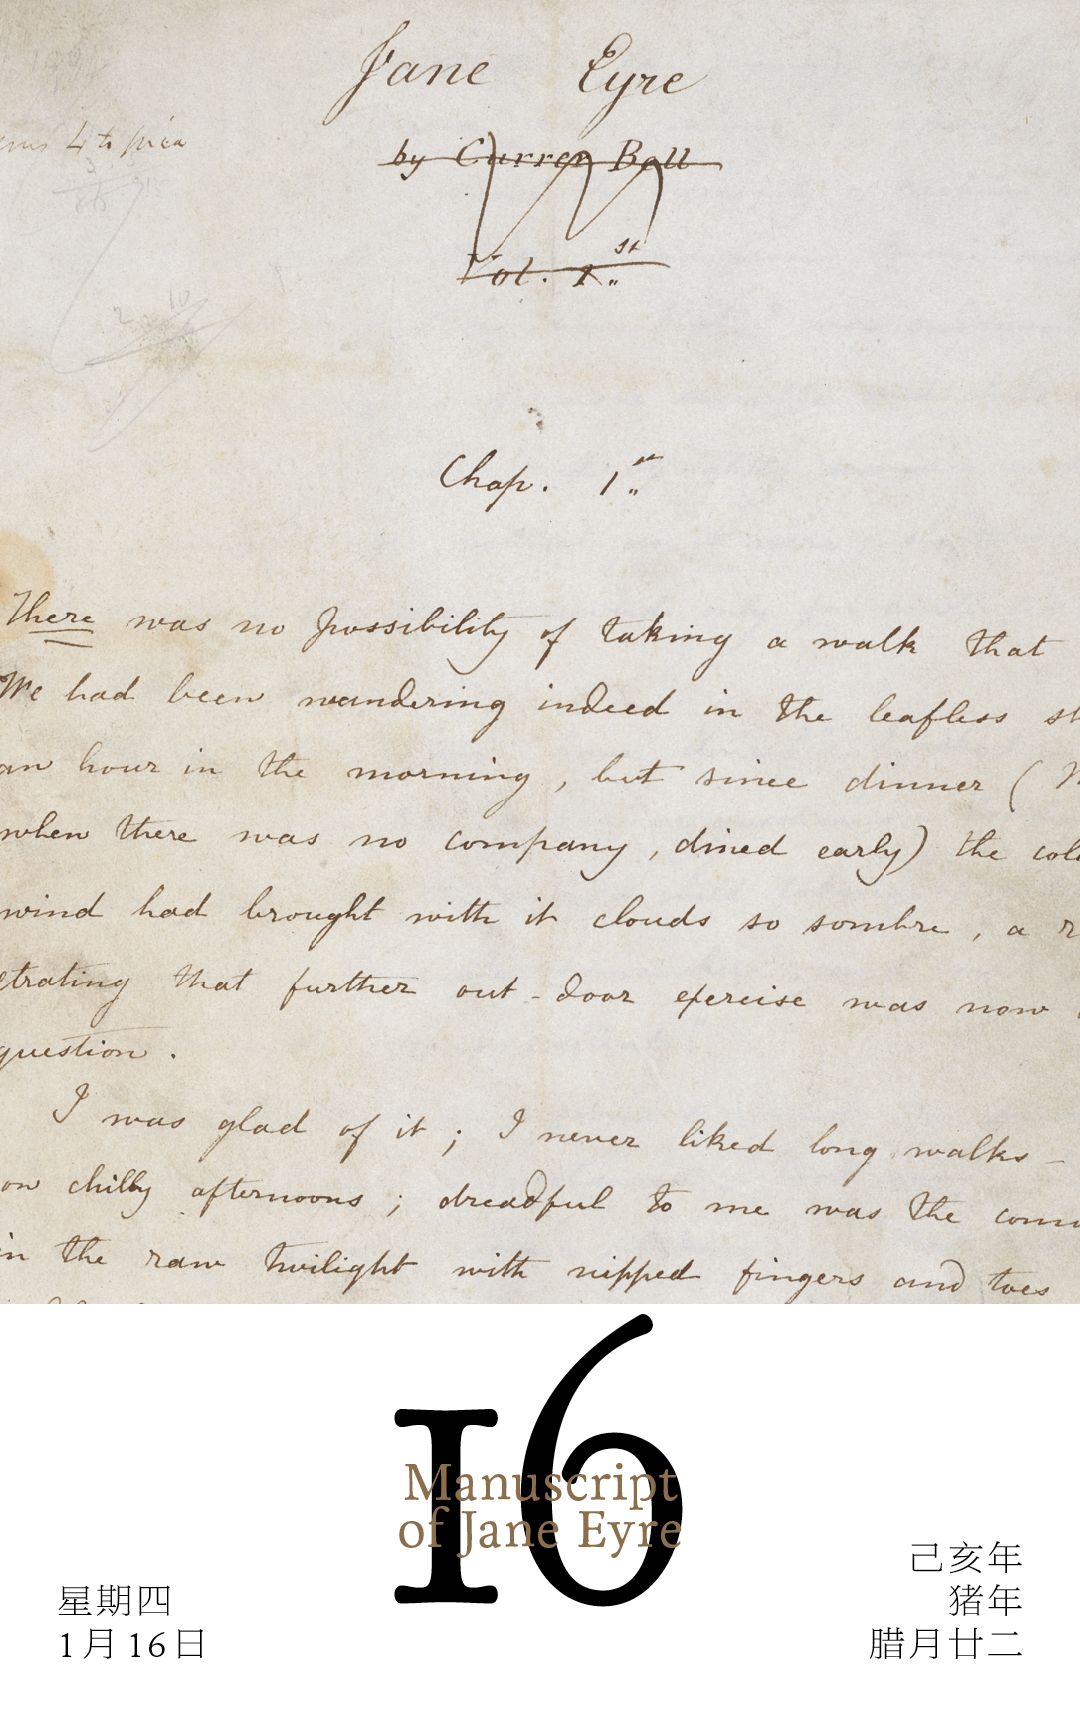 Jane Eyre
by Currer Bell
Vol. 1.st
Chap. 1.st
There was no possibility of taking a walk that
We had been wandering indeed in the leafless sh
an hour in the morning, but since dinner (M
when there was no company, dined early) the col
wind had brought with it clouds so sombre, a r
etrating that further out-door exercise was now
question.
I was glad of it; I never liked long walks –
on chilly afternoons; dreadful to me was the com
in the raw twilight with nipped fingers and toes
16
Manuscript
of Jane Eyre
星期四
1月16日
己亥年
猪年
腊月廿二